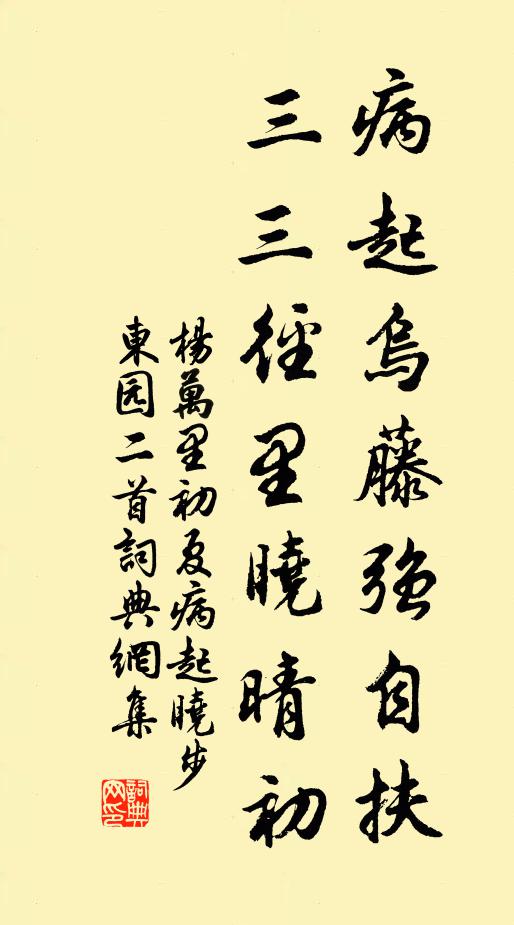 病起烏藤強自扶
三三徑里曉晴初
楊萬里初夏病起曉步
東园二首詞典網集
詞典网印